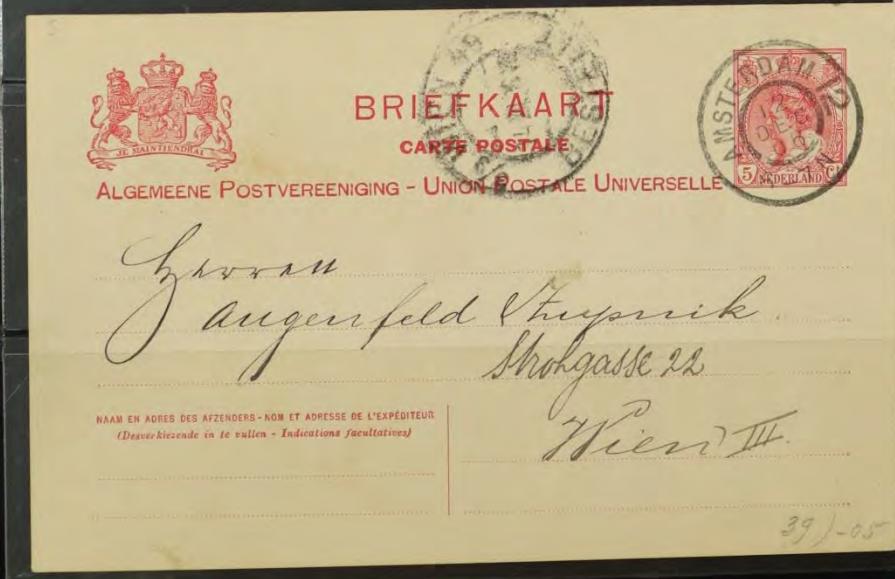 JE MAINTIENDRAI
BRIEFKAART
CARTE POSTALE
ALGEMEENE POSTVEREENIGING - UNION POSTALE UNIVERSELLE
WIEN
BESTELLT
AMSTERDAM 12
DEC
5 NEDERLAND Ct
Herren
Augenfeld &
Strohgasse 22
Wien III.
NAAM EN ADRES DES AFZENDERS - NOM ET ADRESSE DE L'EXPÉDITEUR
(Desverkiezende in te vullen - Indications facultatives)
39)-05